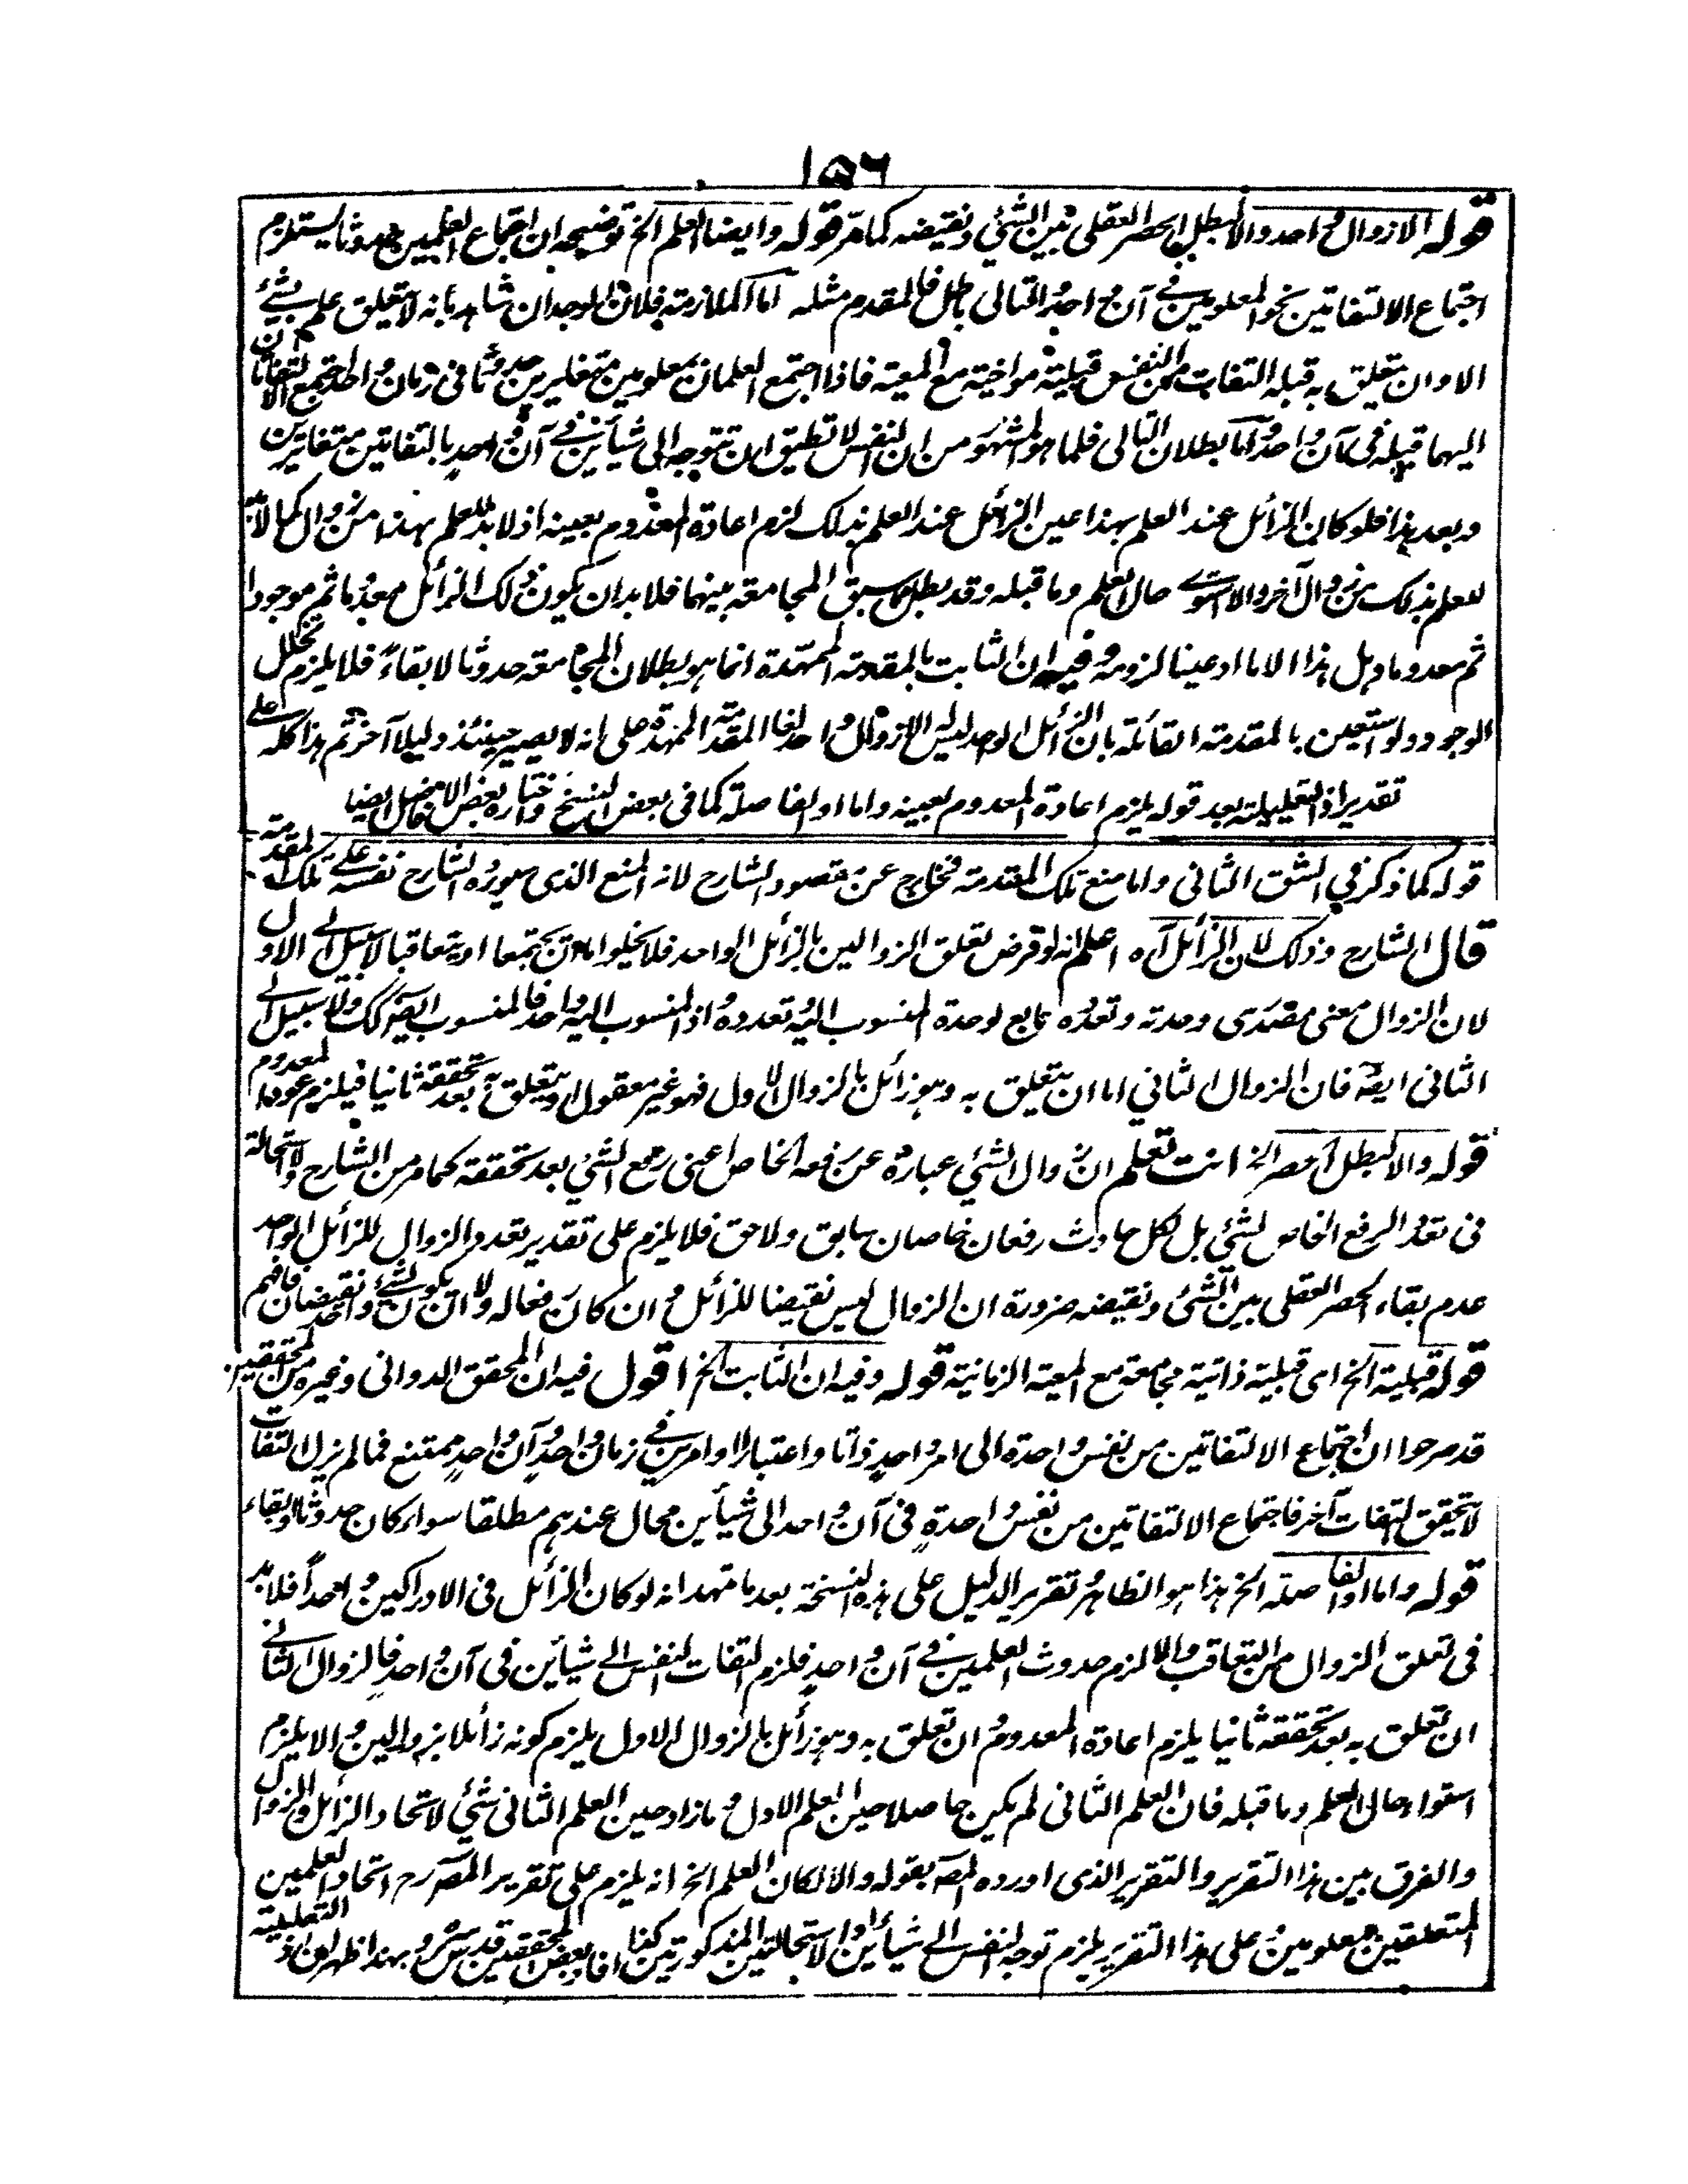 ١٥٦
قوله الا زوال واحد والا لبطل الحصر العقلى بين الشئ ونقيضه كما مر قوله وايضا العلم الخ توضيحه ان اجتماع العلمين حدوثا يستلزم
اجتماع الالتفاتين نحو المعلومين فى آن واحد والتالى باطل فالمقدم مثله اما الملازمة فلان الوجدان شاهد بانه لا يتعلق علم بشئ
الا وان يتعلق به قبله التفات من النفس قبلية مواخية مع المعية فاذا اجتمع العلمان بمعلومين متغايرين حدوثا فى زمان واحد اجتمع الالتفاتان
اليهما قبيله فى آن واحد واما بطلان التالى فلما هو المشهور من ان النفس لا تطيق ان تتوجه الى شيأين فى آن واحد بالتفاتين متغايرين
وبعد هذا فلو كان الزائل عند العلم بهذا عين الزائل عند العلم بذلك لزم اعادة المعدوم بعينه اذ لا بد للعلم بهذا من زوال كما لا بد
للعلم بذلك من زوال آخر والا استوى حال العلم وما قبله وقد بطل بما سبق المجامعة بينهما فلا بد ان يكون ذلك الزائل معدوما ثم موجودا
ثم معدوما وهل هذا الا ما ادعينا لزومه وفيه ان الثابت بالمقدمة الممهدة انما هو بطلان المجامعة حدوثا لا بقاء فلا يلزم تخلل
الوجود ولو استعين بالمقدمة القائلة بان الزائل الواحد ليس له الا زوال واحد لغا المقدمة الممهدة على انه لا يصير حينئذ دليلا آخر ثم هذا كله على
تقدير اذ التعليلية بعد قوله يلزم اعادة المعدوم بعينه واما او الفاصلة كما فى بعض النسخ واختاره بعض الافاضل ايضا
قوله كما ذكر فى الشق الثانى واما منع تلك المقدمة فخارج عن مقصود الشارح لانه المنع الذى سيورده الشارح نفسه على تلك المقدمة
قال الشارح وذلك لان الزائل آه اعلم انه لو فرض تعلق الزوالين بالزائل الواحد فلا يخلو اما ان يجتمعا او يتعاقبا لا سبيل الى الاول
لان الزوال معنى مصدرى وحدته وتعدده تابع لوحدة المنسوب اليه وتعدده واذ المنسوب اليه واحد فالمنسوب ايضه كك ولا سبيل الى
الثانى ايضه فان الزوال الثانى اما ان يتعلق به وهو زائل بالزوال الاول فهو غير معقول او يتعلق به بعد تحققه ثانيا فيلزم عود المعدوم
قوله والا لبطل الحصر الخ انت تعلم ان زوال الشئ عبارة عن رفعه الخاص اعنى رفع الشئ بعد تحققه كما مر من الشارح ولا استحالة
فى تعدد الرفع الخاص لشئ بل لكل حادث رفعان خاصان سابق ولاحق فلا يلزم على تقدير تعدد الزوال للزائل الواحد
عدم بقاء الحصر العقلى بين الشئ ونقيضه ضرورة ان الزوال ليس نقيضا للزائل وان كان رفعا له ولا ان يكون لشئ واحد نقيضان فافهم
قوله قبلية الخ اى قبلية ذاتية مجامعة مع المعية الزمانية قوله وفيه ان الثابت الخ اقول فيه ان المحقق الدوانى وغيره من المحققين
قد صرحوا ان اجتماع الالتفاتين من نفس واحدة الى امر واحد ذاتا واعتبارا او امرين فى زمان واحد وآن واحد ممتنع فما لم يزل التفات
لا يتحقق التفات آخر فاجتماع الالتفاتين من نفس واحدة فى آن واحد الى شيأين محال عندهم مطلقا سواء كان حدوثا او بقاء
قوله واما او الفاصلة الخ هذا هو الظاهر وتقرير الدليل على هذه النسخة بعد ما تمهد انه لو كان الزائل فى الادراكين واحدا فلا بد
فى تعلق الزوال من التعاقب والا لزم حدوث العلمين فى آن واحد فلزم التفات النفس الى شيأين فى آن واحد فالزوال الثانى
ان تعلق به بعد تحققه ثانيا يلزم اعادة المعدوم وان تعلق به وهو زائل بالزوال الاول يلزم كونه زائلا بزوالين والا يلزم
استواء حالى العلم وما قبله فان العلم الثانى لم يكن حاصلا حين العلم الاول وما زاد حين العلم الثانى شئ لاتحاد الزائل والزوال
والفرق بين هذا التقرير والتقرير الذى اورده المصه بقوله والا لكان العلم الخ انه يلزم على تقرير المصه رح اتحاد العلمين
المتعلقين بمعلومين وعلى هذا التقرير يلزم توجه النفس الى شيأين او الاستحالتين المذكورتين كذا افاد بعض المحققين قدس سره وبهذا ظهر ان اذ التعليلية